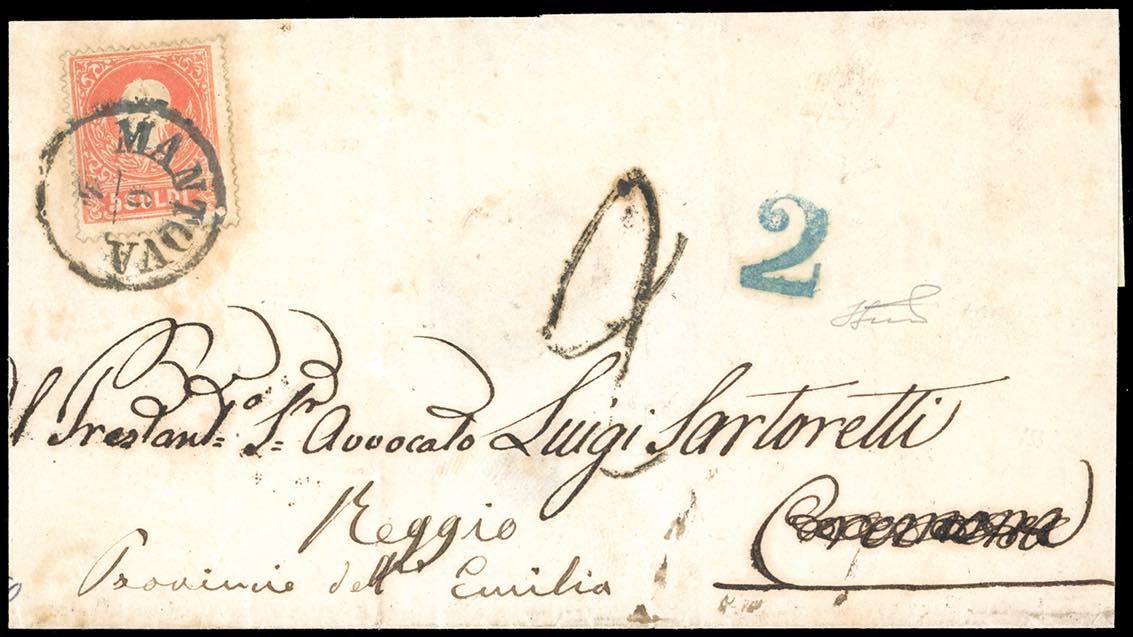 5 SOLDI
MANTOVA
2
2
Al Prestant.º S.r Avvocato Luigi Sartoretti
Reggio
Provincie dell' Emilia
Cremona